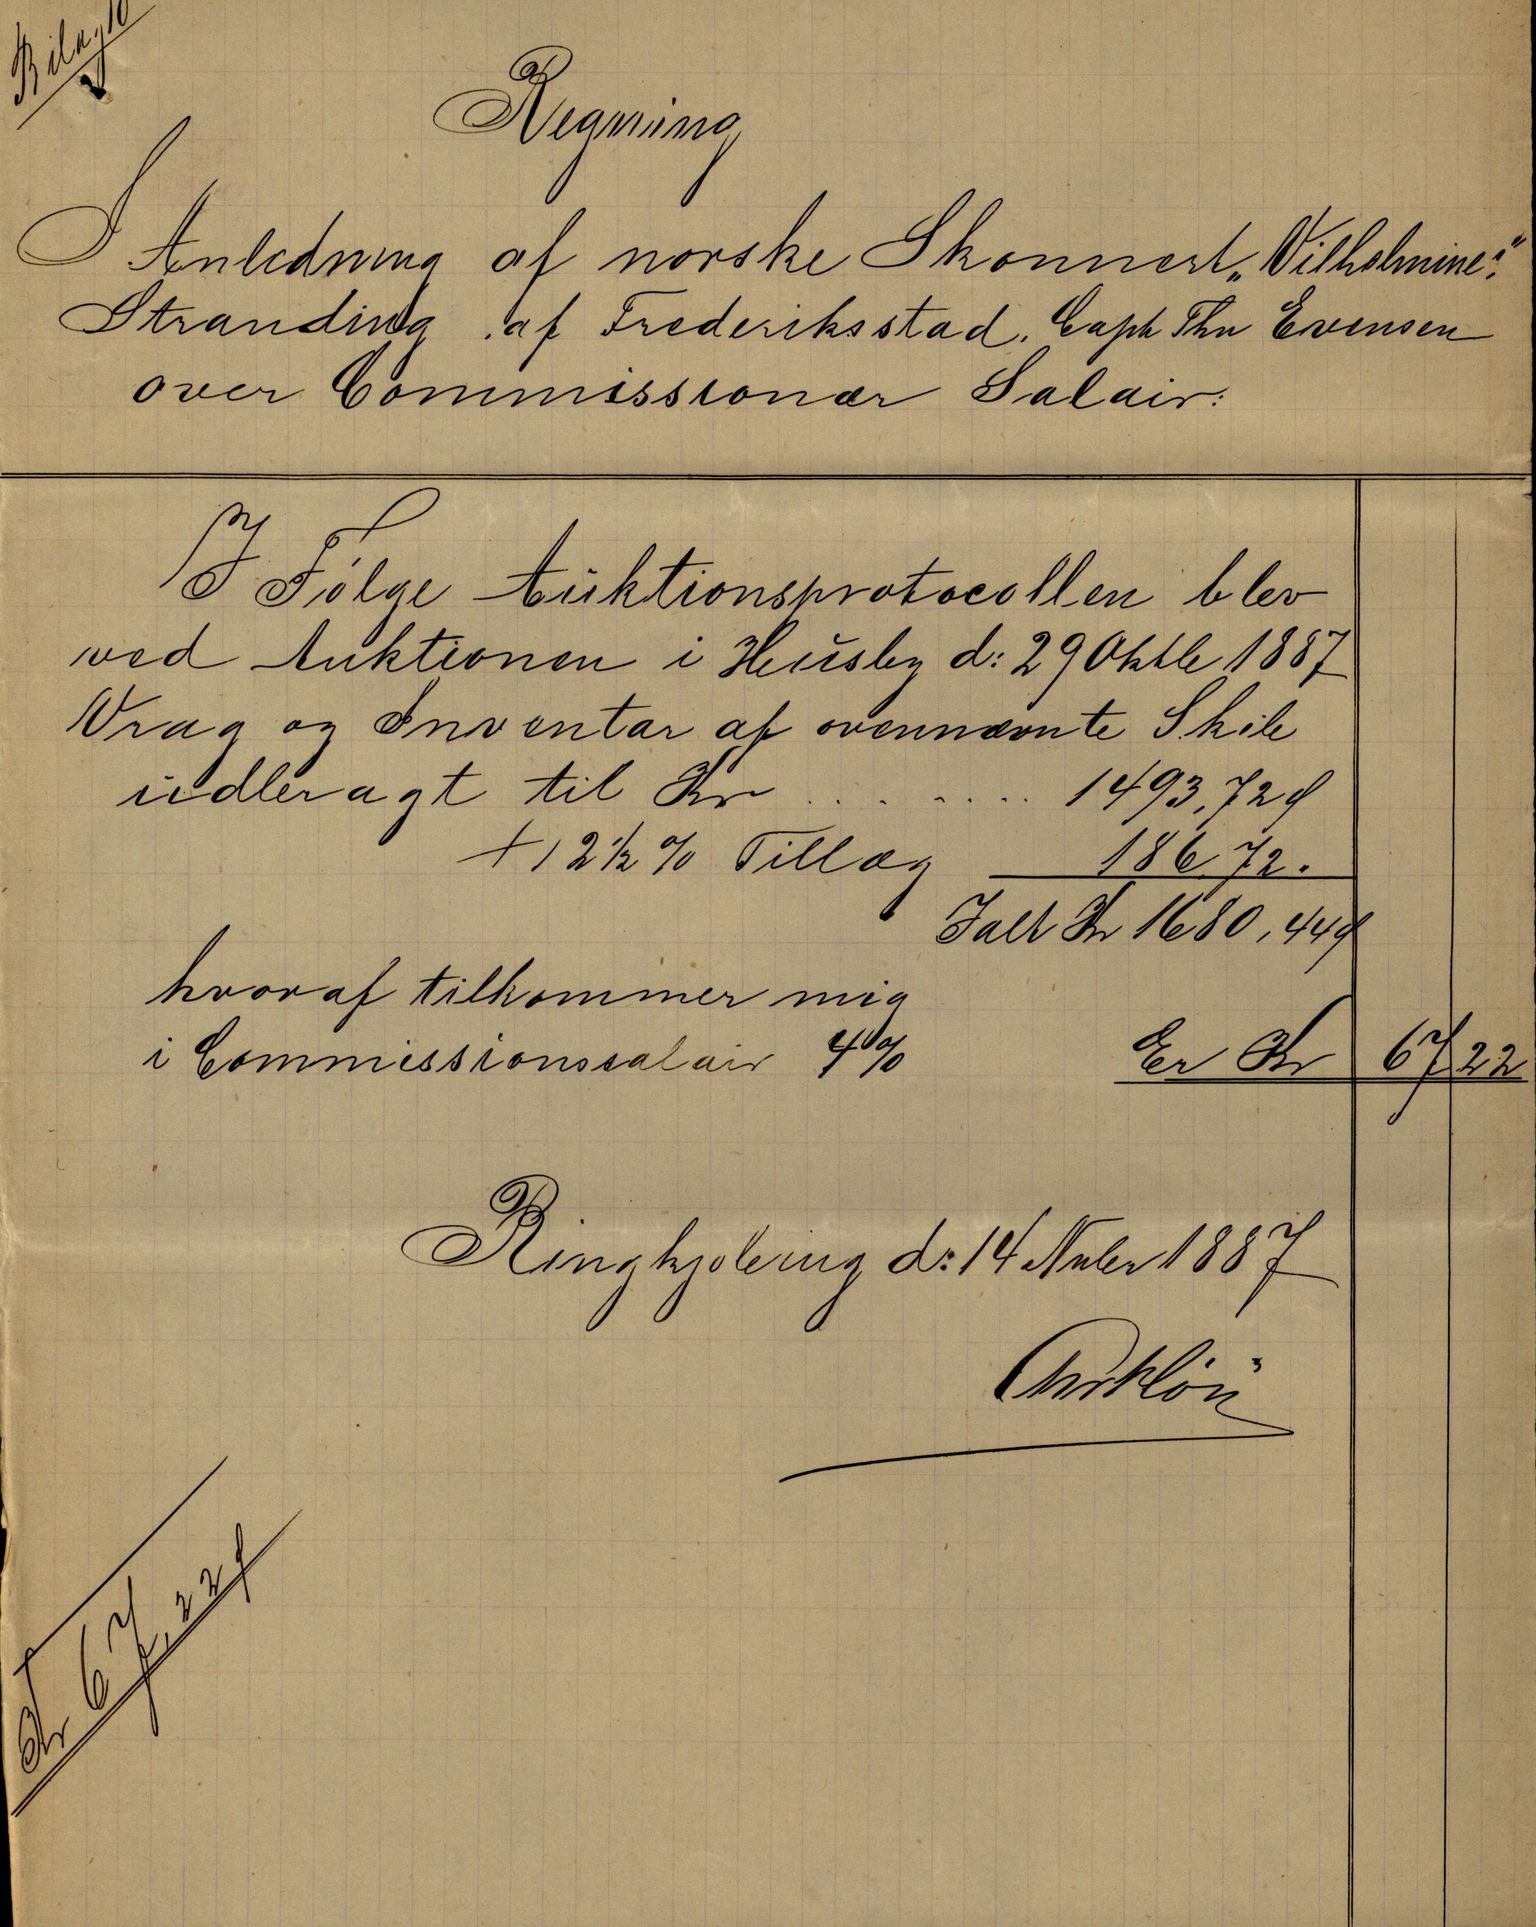 Bilag 10
Regning
I Anledning af norske Skonnert „Vilhelmine"s
Stranding af Frederiksstad. Capt. Thv Evensen
over Commissionær Salair:
I Følge Auktionsprotocollen blev
ved Auktionen i Husby d: 29 Oktbr 1887
Vrag og Inventar af ovennævnte Skib
udbragt til Kr ........ 1493,72 ₰
+ 12½ % Tillæg 186,72.
Ialt Kr 1680,44 ₰
hvoraf tilkommer mig
i Commissionssalair 4% Er Kr 67 22
Ringkjøbing d: 14 Nvbr 1887
Kr 67,22 ₰